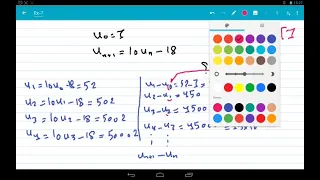 Ex-7
u₀ = 7
uₙ₊₁ = 10uₙ - 18
[7
u₁ = 10u₀ - 18 = 52
u₂ = 10u₁ - 18 = 502
u₃ = 10u₂ - 18 = 5002
u₄ = 10u₃ - 18 = 50002
u₁ - u₀ = 52 - 7 =
u₂ - u₁ = 450
u₃ - u₂ = 4500
uₙ₊₁ - uₙ